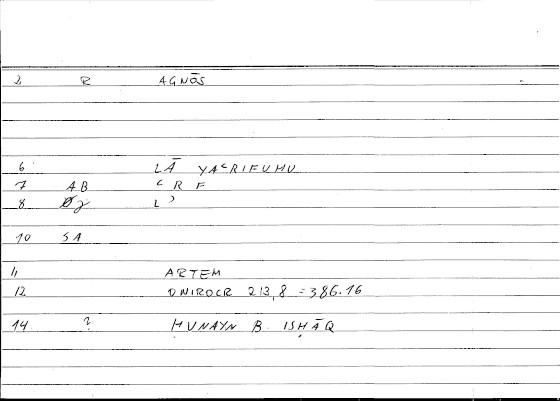 2 R AGNŌS
6 LĀ YAʿRIFUHU
7 AB ʿ R F
8 L ʾ
10 SA
11 ARTEM
12 ONIROCR 213,8 = 386.16
14 ? ḤUNAYN B. ISḤĀQ